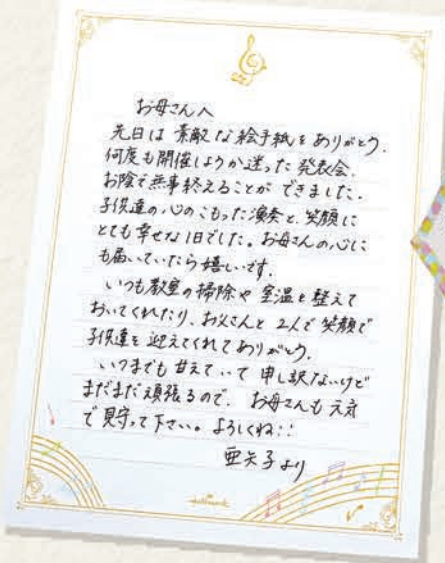 お母さんへ
先日は素敵な絵手紙をありがとう.
何度も開催しようか迷った発表会.
お陰で無事終えることができました.
子供達の心のこもった演奏と、笑顔に
とても幸せな1日でした。お母さんの心に
も届いていたら嬉しいです.
いつも教室の掃除や室温を整えて
おいてくれたり、お父さんと2人で笑顔で
子供達を迎えてくれてありがとう.
いつまでも甘えていて申し訳ないけど
まだまだ頑張るので、お母さんも元気
で見守って下さい。よろしくね::
亜矢子より
Hallmark